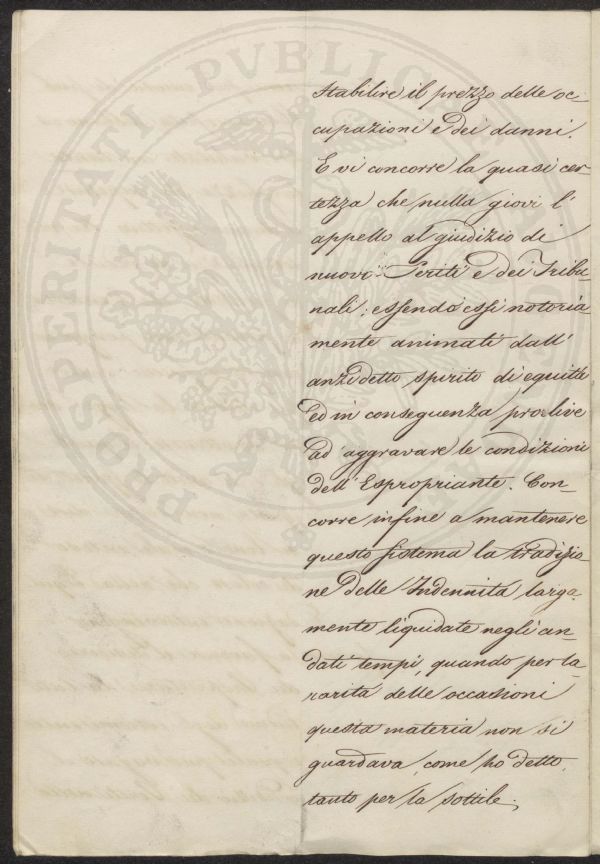 stabilire il prezzo delle oc-
cupazioni e dei danni.
E vi concorre la quasi cer-
tezza che nulla giovi l'
appello al giudizio di
nuovi Periti e dei Tribu-
nali; essendo essi notoria-
mente animati dall'
anzidetto spirito di equità
ed in conseguenza proclive
ad aggravare le condizioni
dell'Espropriante. Con-
corre infine a mantenere
questo sistema la tradizio-
ne delle Indennità larga-
mente liquidate negli an-
dati tempi, quando per la
rarità delle occasioni
questa materia non si
guardava, come ho detto,
tanto per la sottile;
PROSPERITATI PVBLICAE